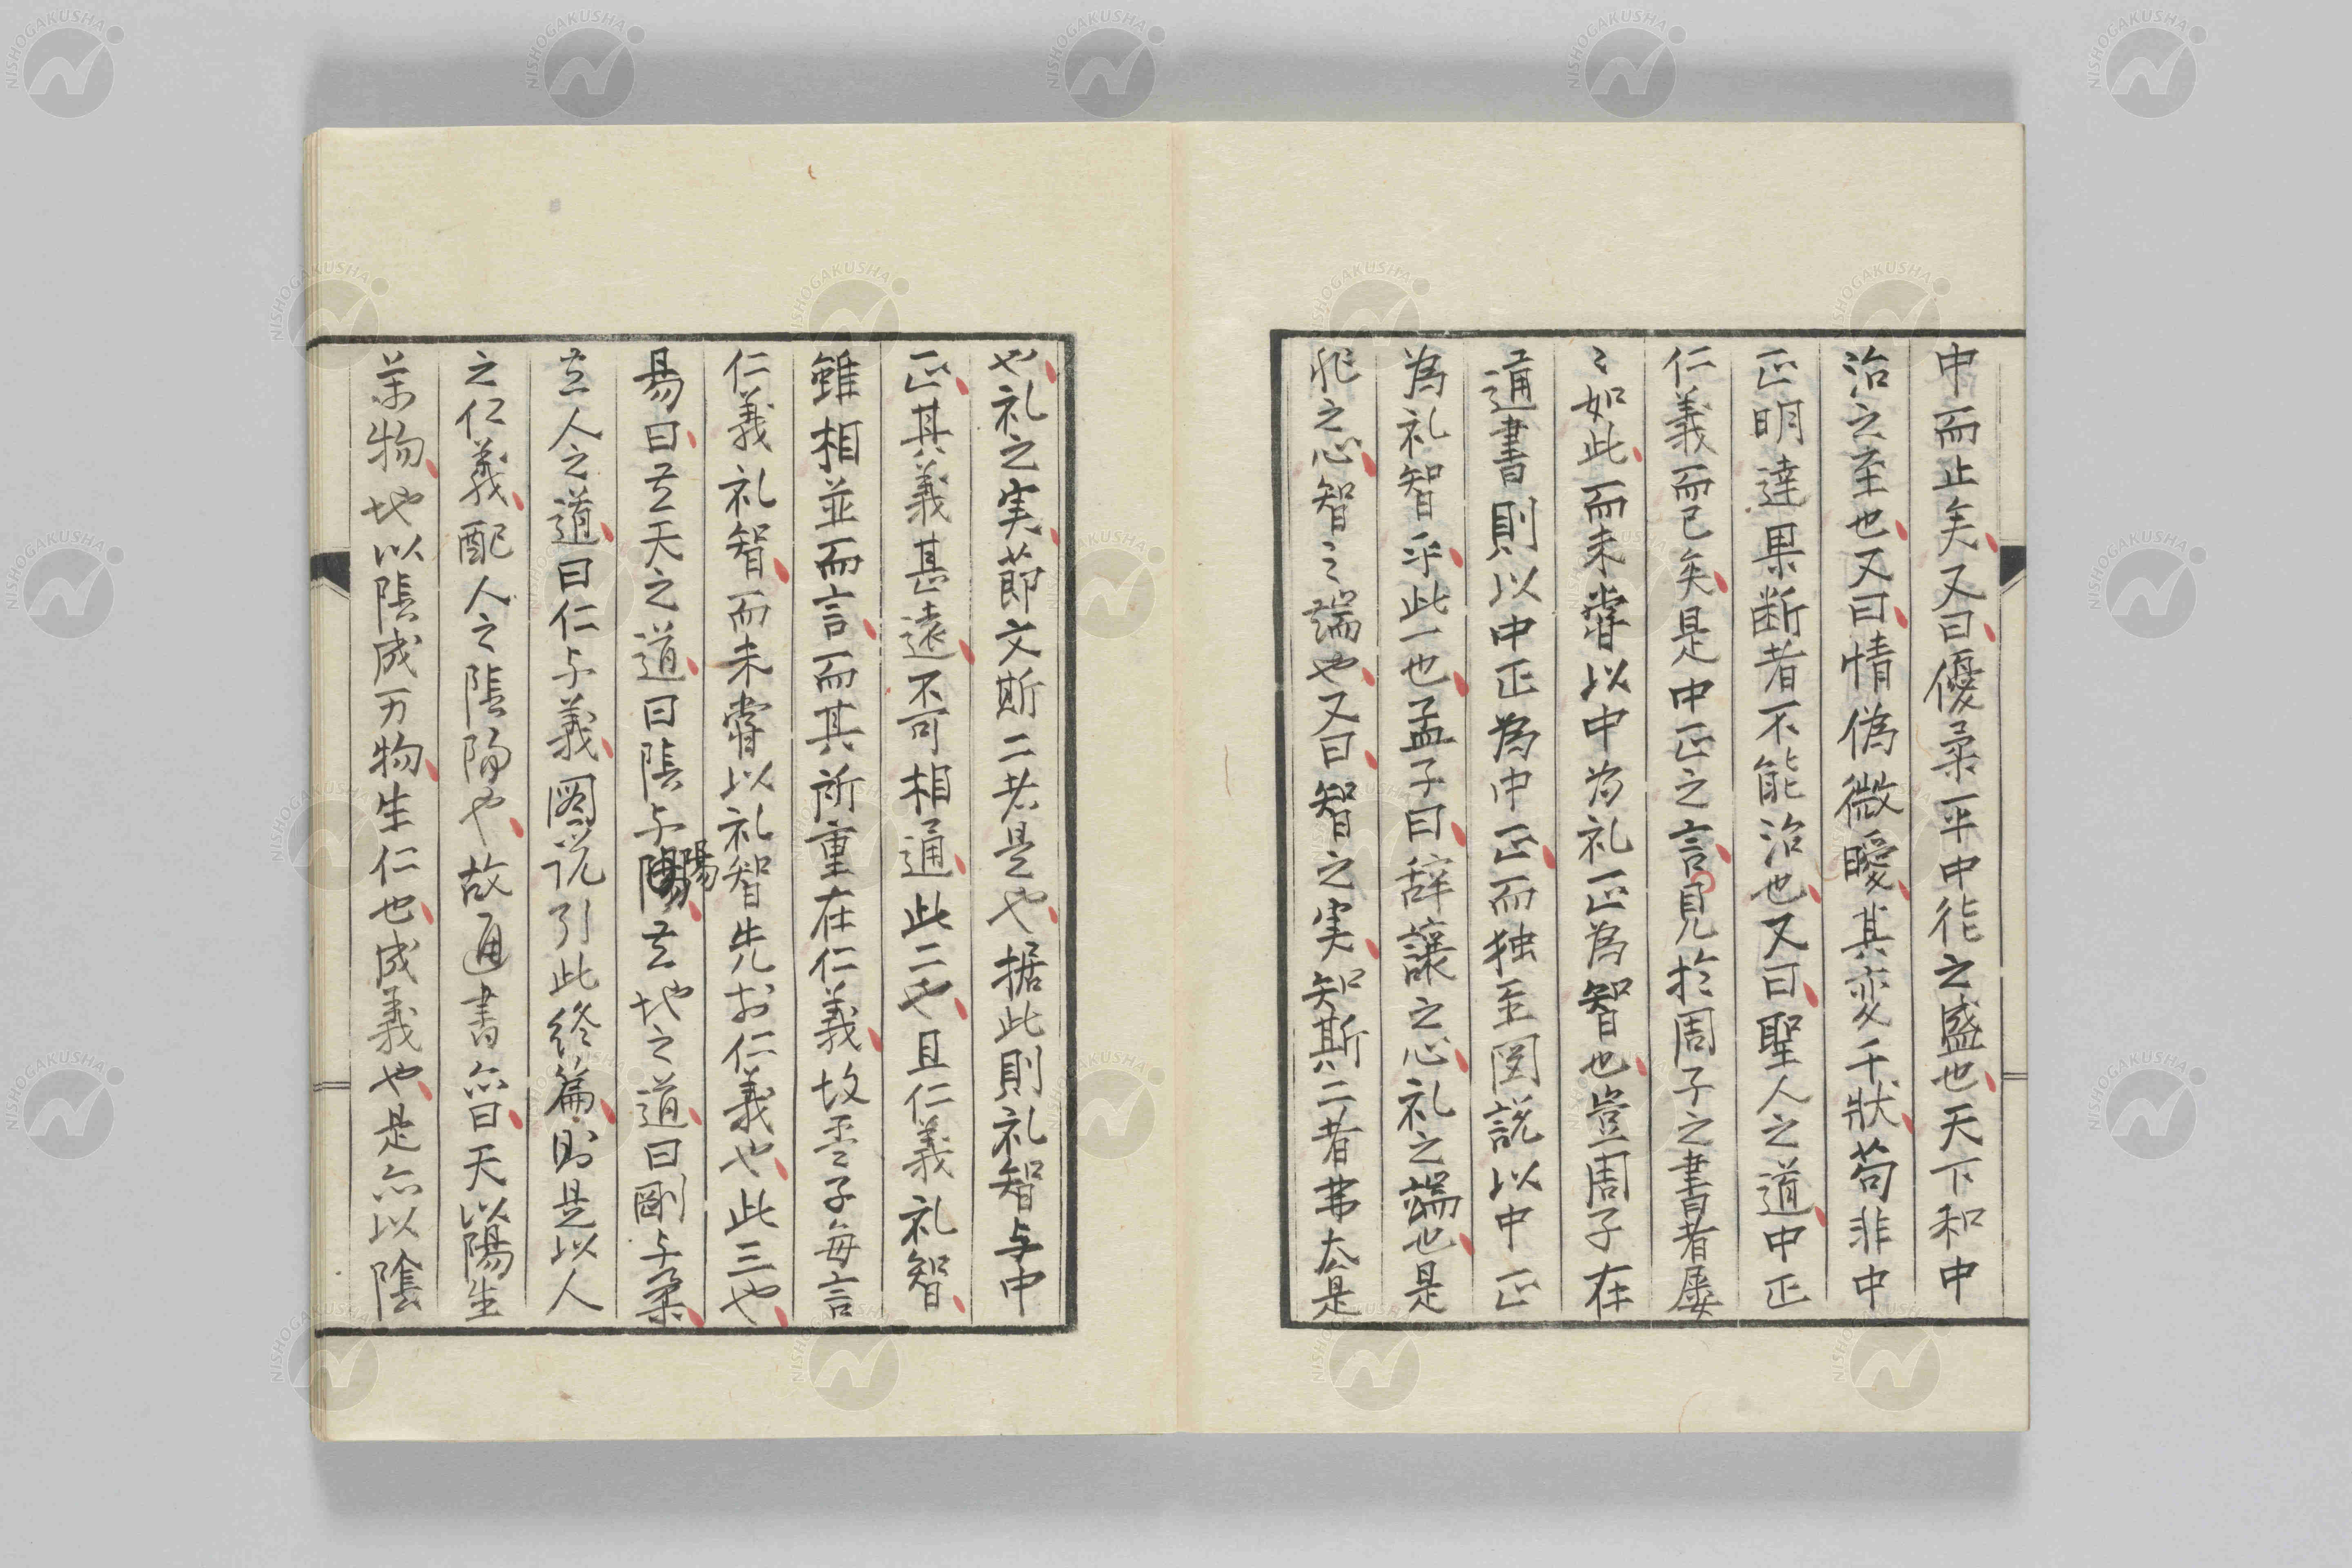 中而止矣又曰優柔平中徳之盛也天下和中
治之至也又曰情偽微曖其変千狀苟非中
正明達果断者不能治也又曰聖人之道中正
仁義而已矣是中正之言見於周子之書者屡
〻如此而未嘗以中为礼正為智也豈周子在
通書則以中正為中正而独至図説以中正
為礼智乎此一也孟子曰辞讓之心礼之端也是
非之心智之端也又曰智之実知斯二者弗去是
也礼之実節文斯二者是也据此則礼智与中
正其義甚遠不可相通此二也且仁義礼智
雖相並而言而其所重在仁義故孟子每言
仁義礼智而未嘗以礼智先於仁義也此三也
易曰立天之道曰陰与陽立地之道曰剛与柔
立人之道曰仁与義図说引此終篇則是以人
之仁義配人之陰陽也故通書亦曰天以陽生
萬物地以陰成万物生仁也成義也是亦以陰